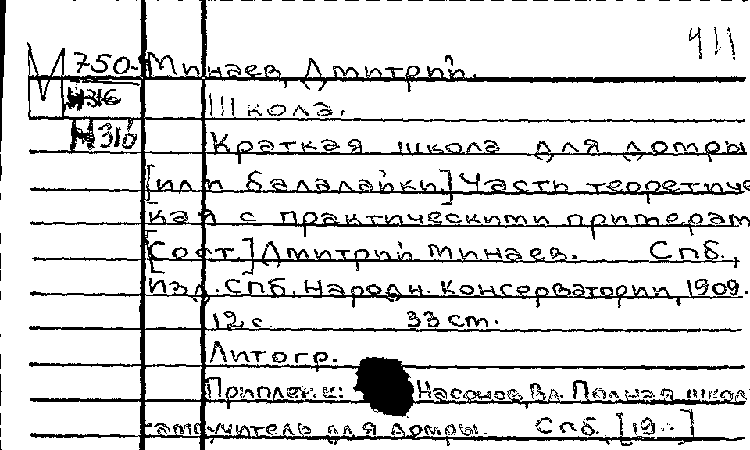 911
М 750-5 Минаев, Дмитрий.
Н316 Школа.
Н316 Краткая школа для домры
[или балалайки.] Часть теоретиче
кая с практическими примерам
[Сост.] Дмитрий Минаев. Спб.,
изд. Спб. Народн. Консерватории, 1909.
12 с. 33 см.
Литогр.
Приплен к: Насонов, Вл. Полная школ
самоучитель для домры. Спб. [19-]